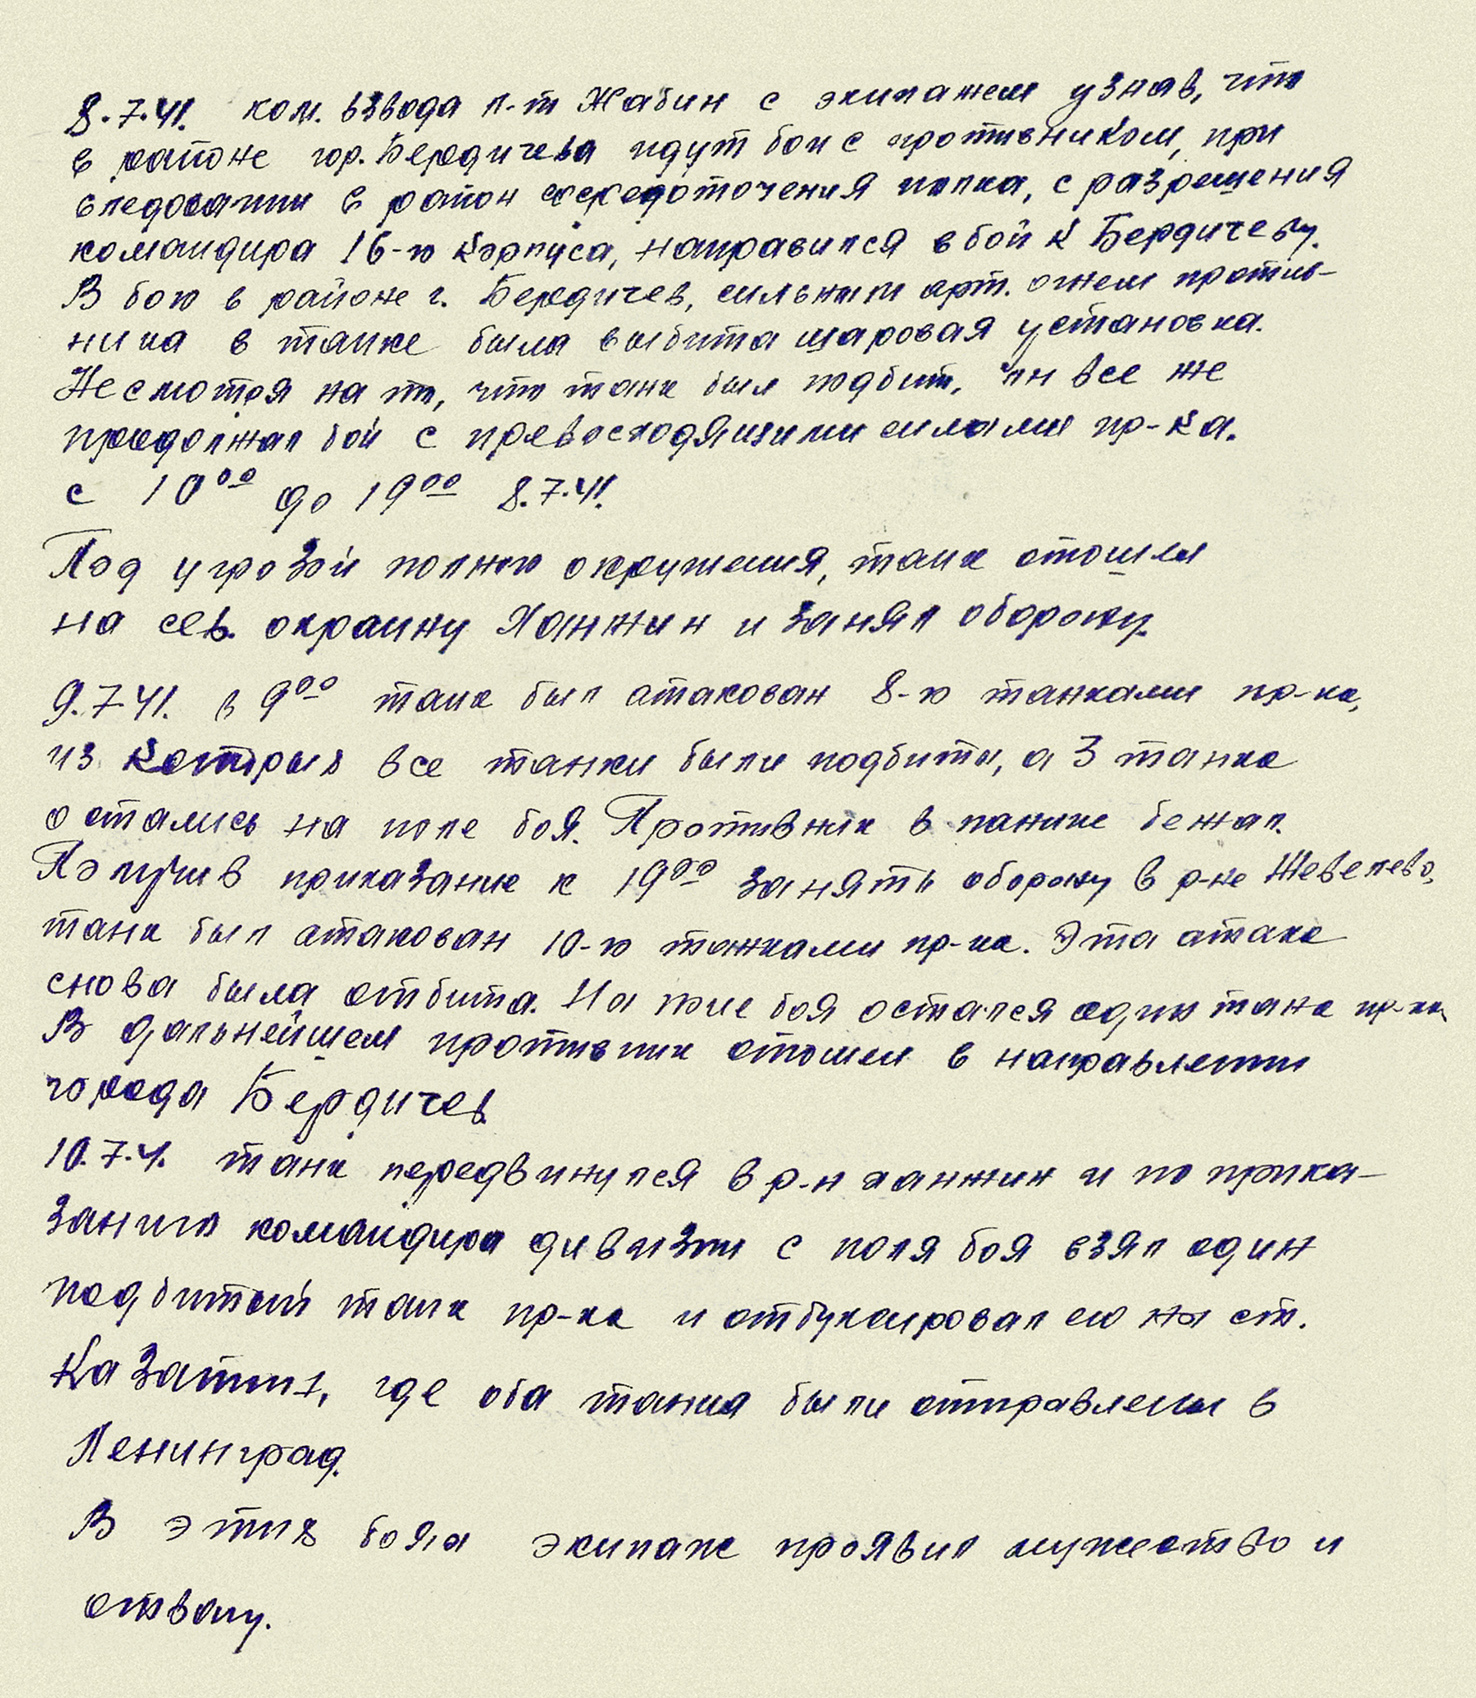 8.7.41. ком. взвода л-т Жабин с экипажем узнав, что
в районе гор. Бердичева идут бои с противником, при
следовании в район сосредоточения полка, с разрешения
командира 16-го корпуса, направился в бой к Бердичеву.
В бою в районе г. Бердичев, сильным арт. огнем против-
ника в танке была выбита шаровая установка.
Несмотря на то, что танк был подбит, он все же
продолжал бой с превосходящими силами пр-ка.
с 10⁰⁰ до 19⁰⁰ 8.7.41.
Под угрозой полного окружения, танк отошел
на сев. окраину Ханжин и занял оборону.
9.7.41. в 9⁰⁰ танк был атакован 8-ю танками пр-ка,
из которых все танки были подбиты, а 3 танка
остались на поле боя. Противник в панике бежал.
Получив приказание к 19⁰⁰ занять оборону в р-не Жевелево,
танк был атакован 10-ю танками пр-ка. Эта атака
снова была отбита. На поле боя остался один танк пр-ка.
В дальнейшем противник отошел в направлении
города Бердичев.
10.7.4. танк передвинулся в р-н ханжин и по прика-
занию командира дивизии с поля боя взял один
подбитый танк пр-ка и отбуксировал его на ст.
Казатин, где оба танка были отправлены в
Ленинград.
В этих боях экипаж проявил мужество и
отвагу.